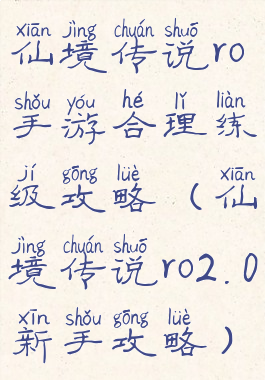 xiān jìng chuán shuō
仙境传说ro
shǒu yóu hé lǐ liàn
手游合理练
jí gōng lüè xiān
级攻略（仙
jìng chuán shuō
境传说ro2.0
xīn shǒu gōng lüè
新手攻略）